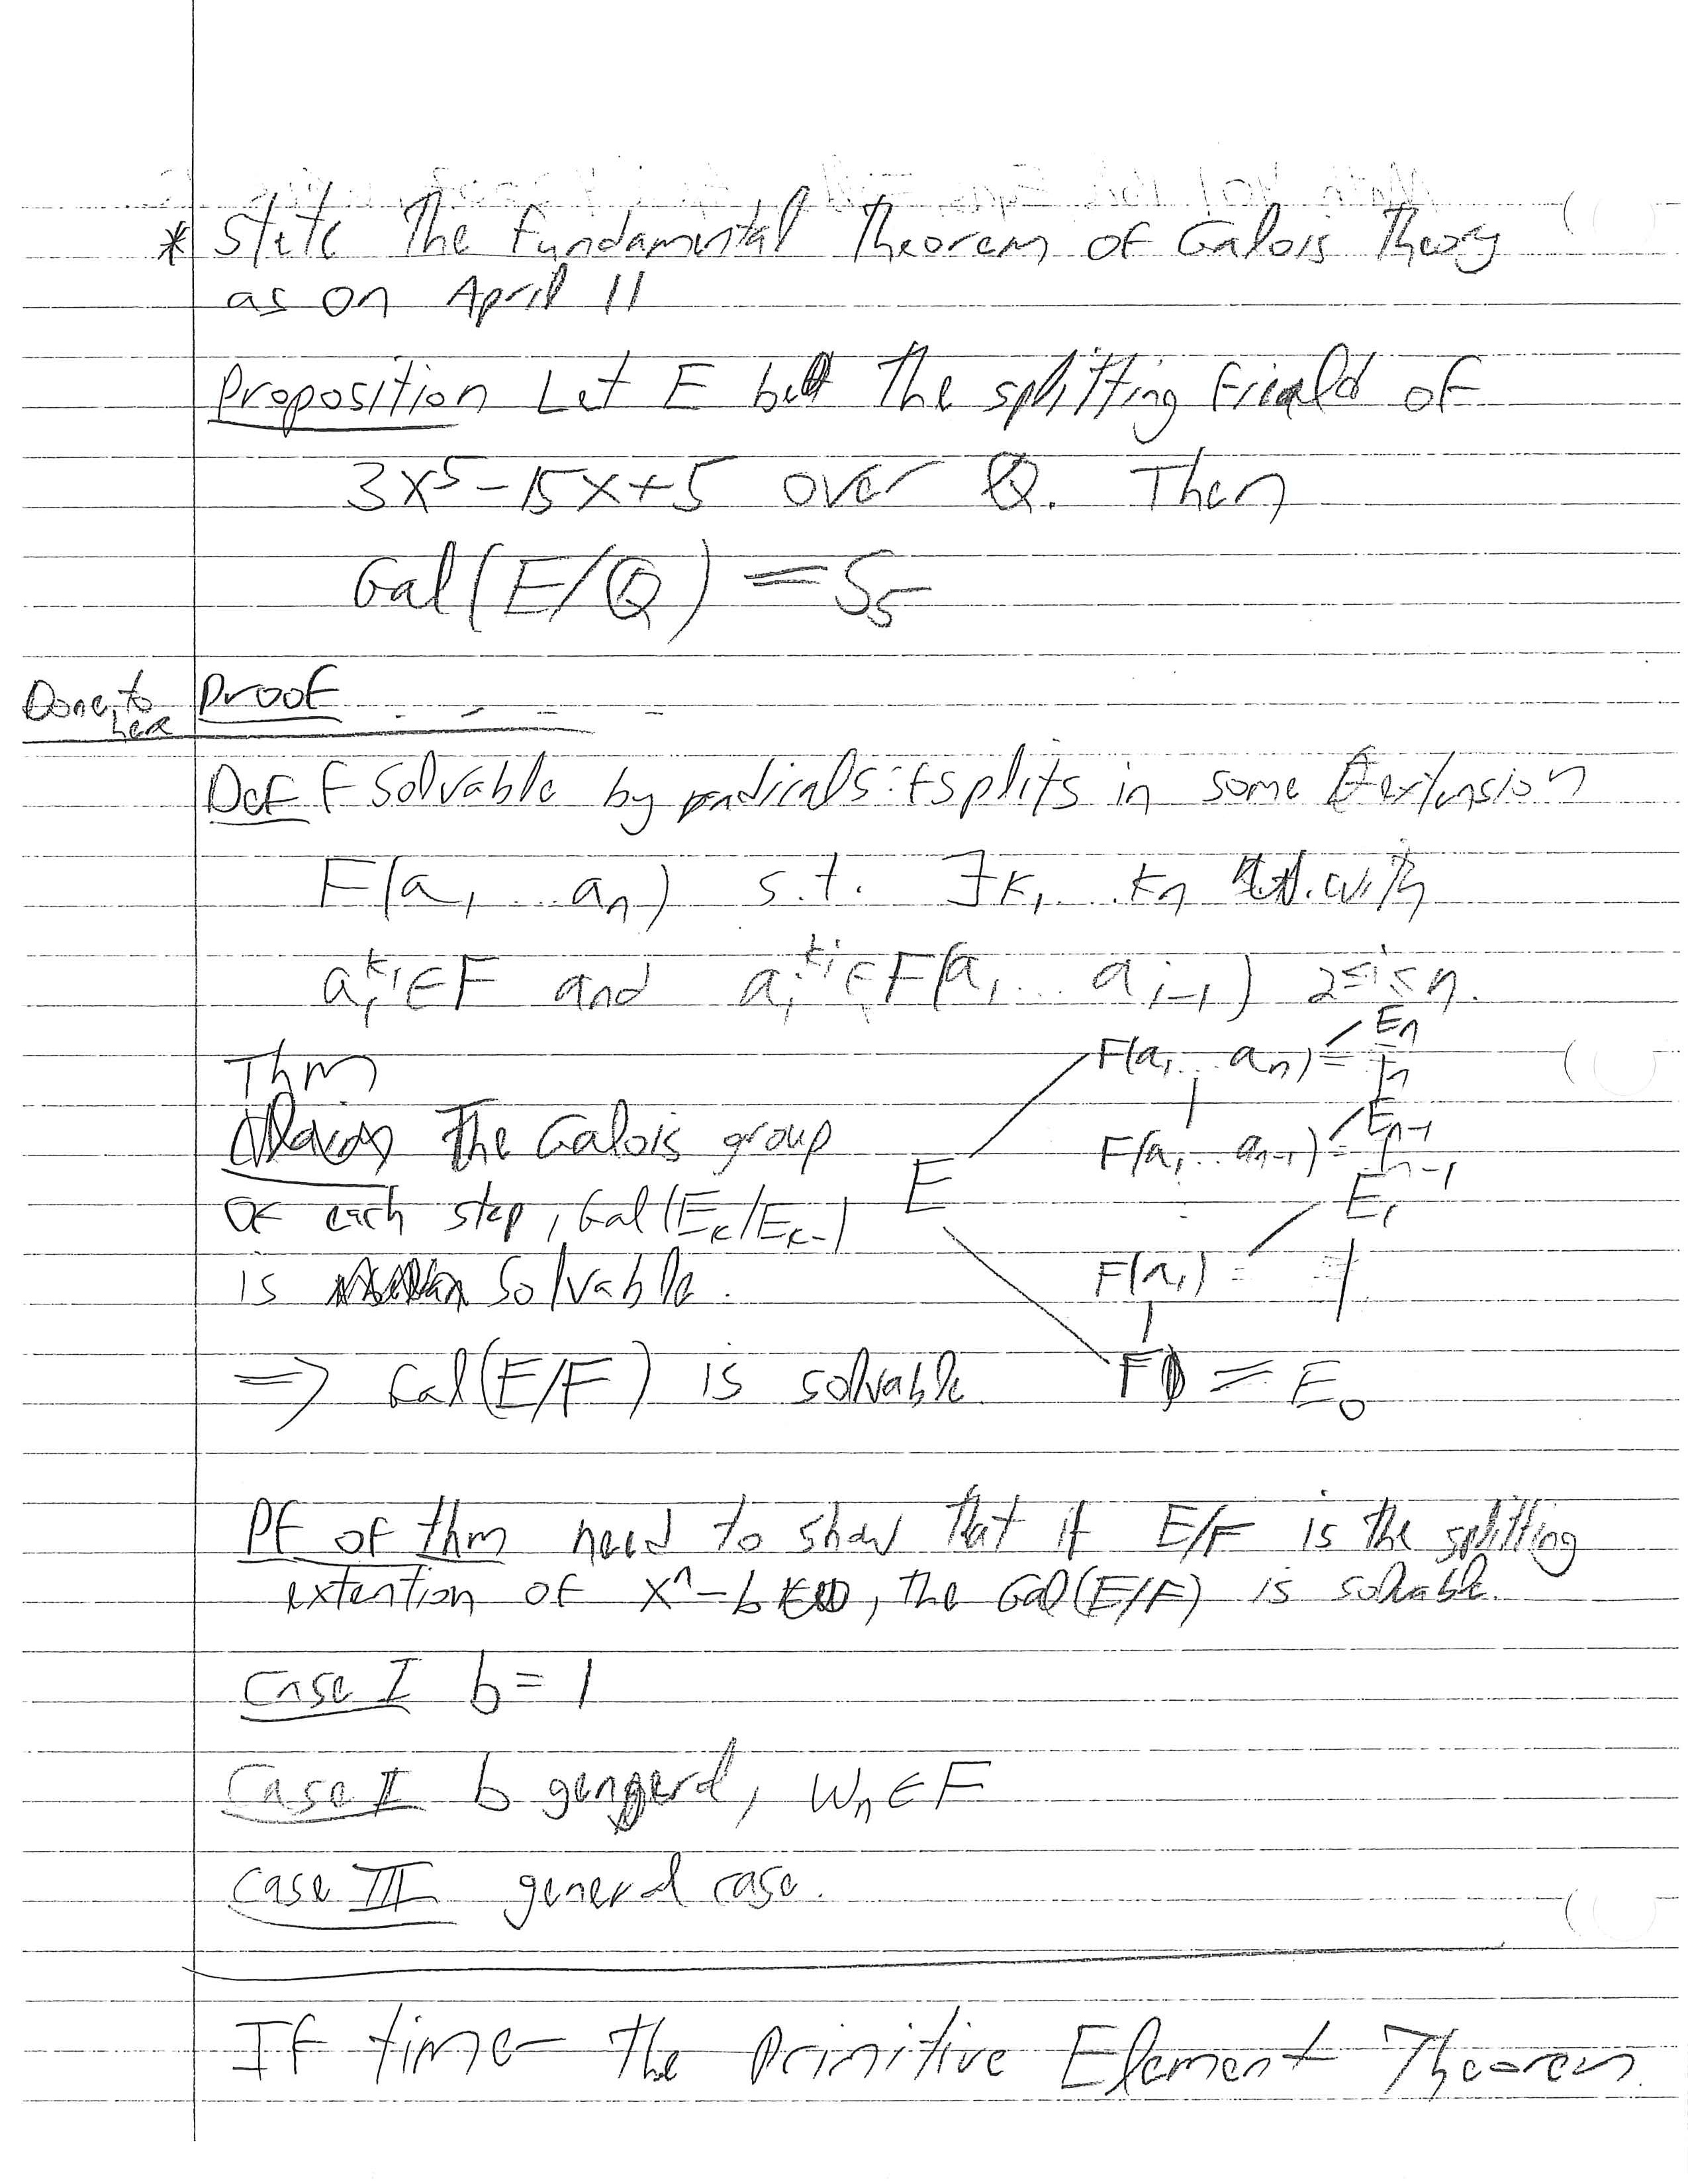 * State The Fundamental Theorem of Galois Theory
as on April 11
Proposition Let E be the splitting field of
3x⁵-15x+5 over Q. Then
Gal(E/Q) = S₅
Done to here
Proof
Def f solvable by radicals: f splits in some extension
F(a₁ ... aₙ) s.t. ∃k₁ ... kₙ with
a₁^k₁ ∈ F and aᵢ^kᵢ ∈ F(a₁ ... aᵢ₋₁) 2≤i≤n.
Thm
The Galois group
of each step, Gal(Eₖ/Eₖ₋₁)
is solvable.
⇒ Gal(E/F) is solvable
E
F(a₁ ... aₙ) = Eₙ
F(a₁ .. aₙ₋₁) = Eₙ₋₁
F(a₁) = E₁
F = E₀
Pf of thm need to show that if E/F is the splitting
extention of xⁿ-b, the Gal(E/F) is solvable.
Case I b=1
Case II b general, Wₙ∈F
Case III general case.
If time - The Primitive Element Theorem